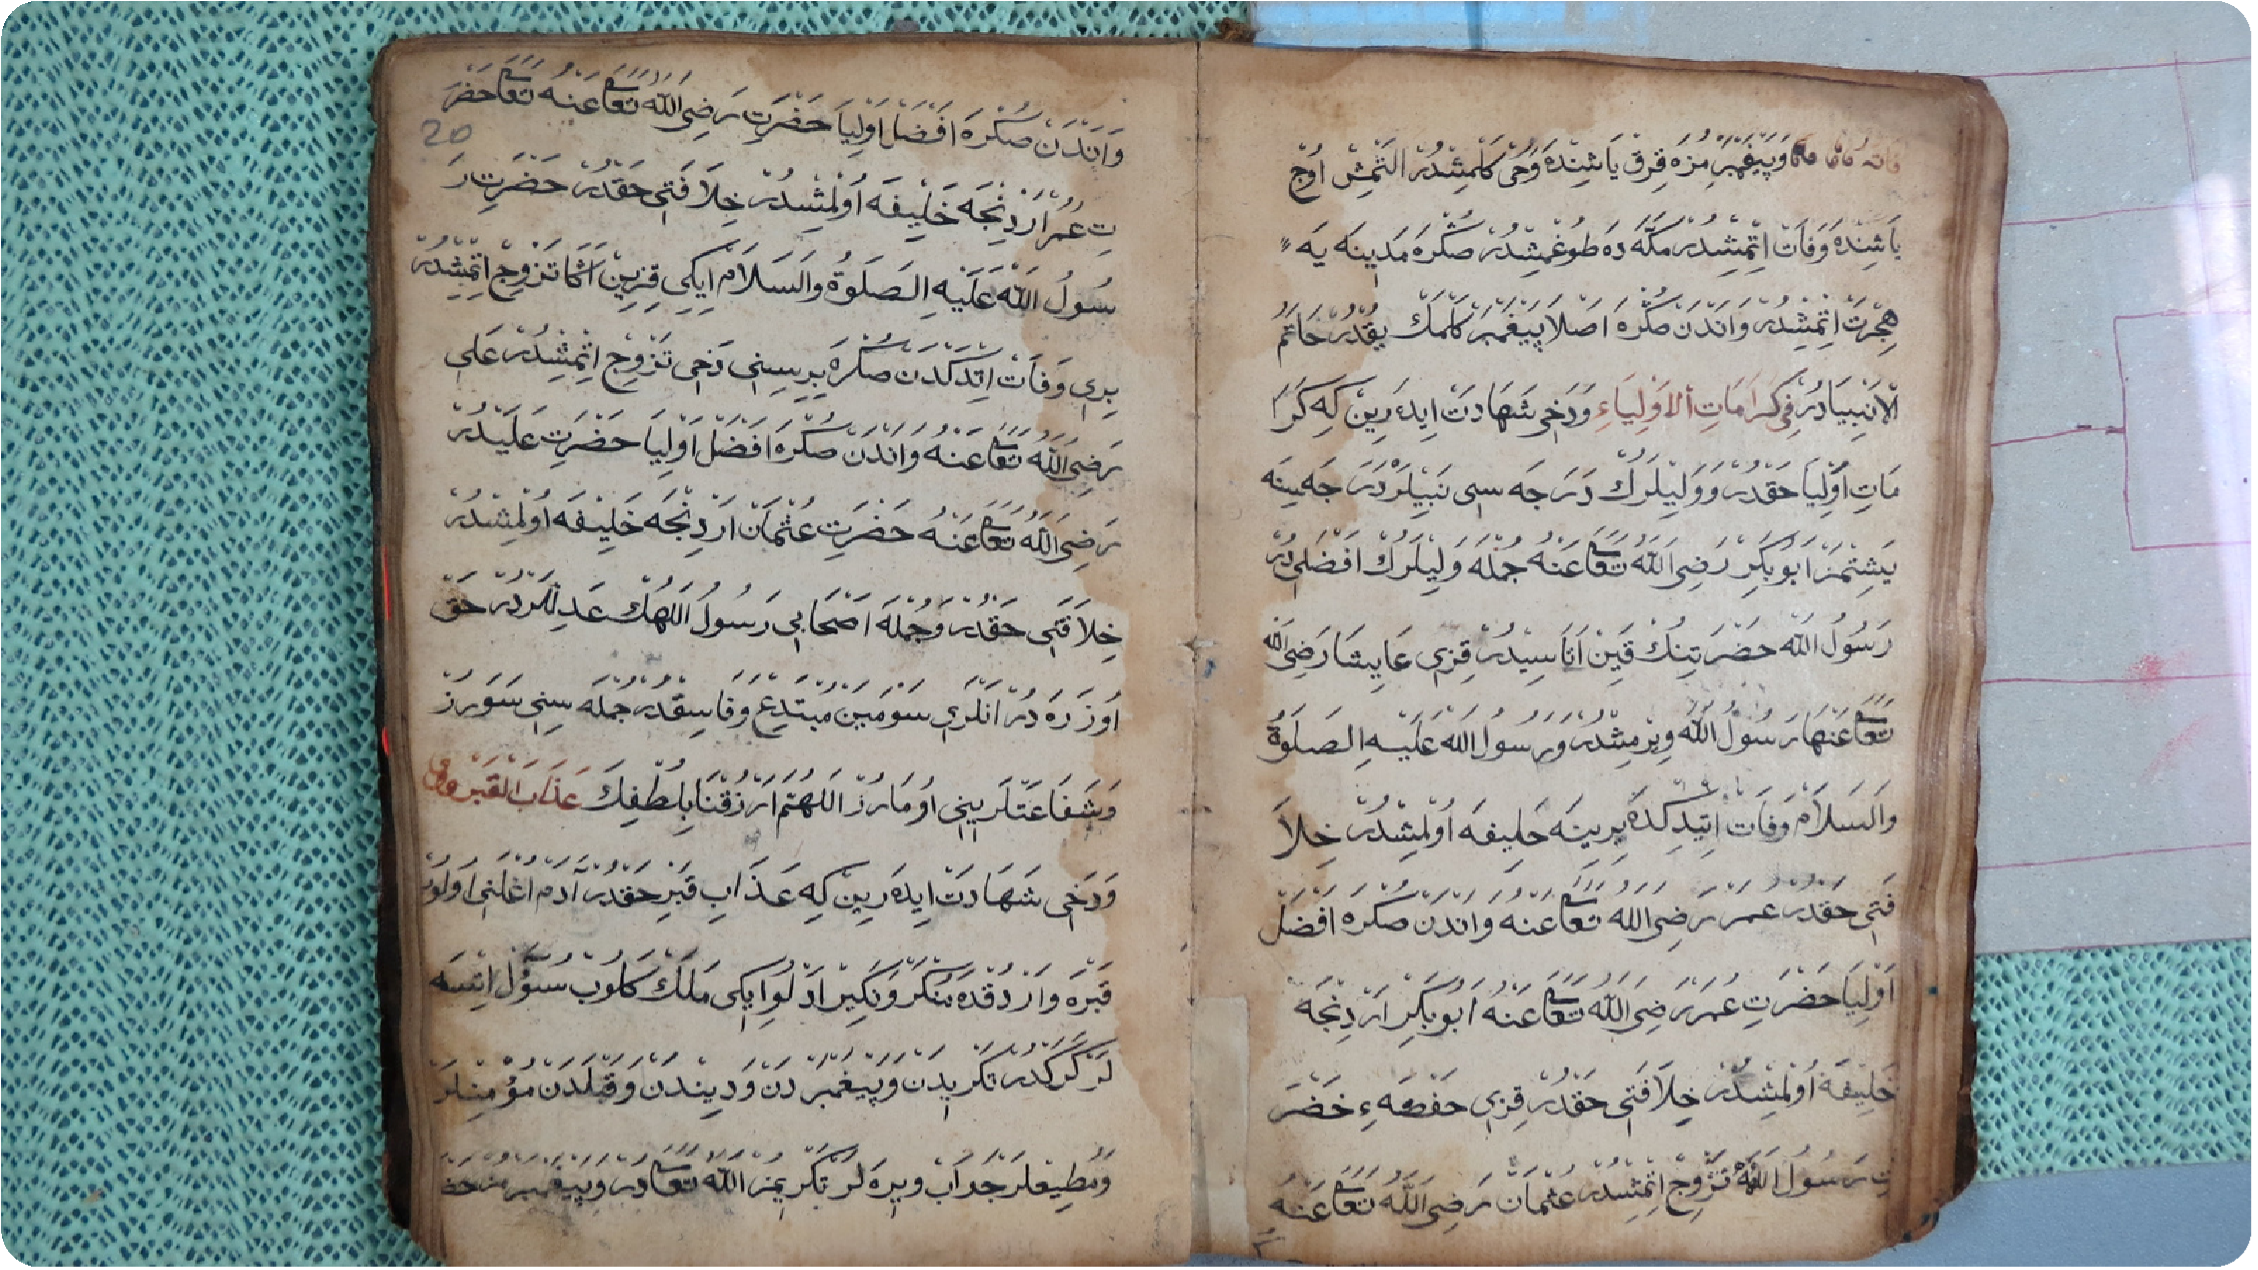 وَپَيْغَمْبَرِمُزَه قِرِقْ يَاشِنْدَه وَحْى كَلْمِشْدُرْ اَلْتْمِشْ اُوچْ
يَاشِنْدَه وَفَاتْ اِتْمِشِدُرْ مَكَّه دَه طُوغْمِشْدُرْ صُكْرَه مَدِينَه يَه
هِجْرَتْ اِتْمِشْدُرْ وَاَنْدَنْ صُكْرَه اَصْلَا پَيْغَمْبَرْ كَلْمَكْ يُقْدُرْ خَاتَمُ
الْاَنْبِيَادُرْ فِي كَرَامَاتِ الْاَوْلِيَاءِ وَدَخِى شَهَادَتْ اِيدَه رِينْ كِه كَرَا
مَاتِ اَوْلِيَا حَقْدُرْ وَوَلِيلَرُكْ دَرَجَه سِى نَبِيلَرْ دَرَجَه سِنَه
يَتِشْمَزْ اَبُو بَكِرْ رَضِىَ اللّٰهُ تَعَالَى عَنْهُ جُمْلَه وَلِيلَرُكْ اَفْضَلِى دُرْ
رَسُولُ اللّٰه حَضْرَتِنُكْ قَيِنْ اَتَاسِيدُرْ قِزِى عَايِشَا رَضِىَ اللّٰه
تَعَالَى عَنْهَا رَسُولُ اللّٰه وِيرْمِشْدُرْ وَرَسُولُ اللّٰه عَلَيْهِ الصَلَوةُ
وَالسَلَامْ وَفَاتْ اِتِيدِكْدَه يِرِينَه خَلِيفَه اُولْمِشْدُرْ خِلَا
فَتِى حَقْدُرْ عُمَرْ رَضِىَ اللّٰه تَعَالَى عَنْهُ وَاَنْدَنْ صُكْرَه اَفْضَلْ
اَوْلِيَا حَضْرَتِ عُمَرْ رَضِىَ اللّٰهُ تَعَالَى عَنْهُ اَبُو بَكِرْ اَرْدِنْجَه
خَلِيفَه اُولْمِشْدُرْ خِلَافَتِى حَقْدُرْ قِزِى حَفْصَه ءِ حَضْرَ
تِ رَسُولُ اللّٰهْ تَزْوِجْ اِتْمِشْدُرْ عُثْمَانْ رَضِىَ اللّٰهُ تَعَالَى عَنْهُ
وَاَنْدَنْ صُكْرَه اَفْضَلْ اَوْلِيَا حَضْرَتِ رَضِىَ اللّٰهُ تَعَالَى عَنْهُ تَعَالَى حَضْرَ
20
تِ عُمَرْ اَرْدِنْجَه خَلِيفَه اُولْمِشْدُرْ خِلَافَتِى حَقْدُرْ حَضْرَتِ رَ
سُولُ اللّٰه عَلَيْهِ الصَلَوةُ وَالسَلَامْ اِيكِى قِزِينْ اَكَا تَزْوِجْ اِتْمِشْدُرْ
بِرِى وَفَاتْ اِتْدِكْدَنْ صُكْرَه بِرِسِنِى دَخِى تَزْوِجْ اِتْمِشْدُرْ عَلِى
رَضِىَ اللّٰهُ تَعَالَى عَنْهُ وَاَنْدَنْ صُكْرَه اَفْضَلْ اَوْلِيَا حَضْرَتِ عَلِيدُرْ
رَضِىَ اللّٰهُ تَعَالَى عَنْهُ حَضْرَتِ عُثْمَانْ اَرْدِنْجَه خَلِيفَه اُولْمِشْدُرْ
خِلَافَتِى حَقْدُرْ وَجُمْلَه اَصْحَابِ رَسُولُ اللّٰهُكْ عَدِلْلَرْدُرْ حَقْ
اُوزَرَه دُرْ اَنْلَرِى سَوْمَيَنْ مُبْتَدِعْ وَفَاسِقْدُرْ جُمْلَه سِنِى سَوَرُزْ
وَشَفَاعَتْلَرِينِى اُومَارُزْ اَللّٰهُمَّ اَرْزُقْنَا بِلُطْفِكَ عَذَابَ الْقَبْرِ
وَدَخِى شَهَادَتْ اِيدَه رِينْ كِه عَذَابِ قَبِرْ حَقْدُرْ آدَمْ اُغْلَنِى اُولُوبْ
قَبْرَه وَارْدُقْدَه مُنْكَرْ وَنَكِيرْ اَدْلُو اِيكِى مَلَكْ كَلُوبْ سُؤَلْ اِتْسَه
لَرْ كَرَكْدُرْ تَكْرِيدَنْ وَپَيْغَمْبَرْدَنْ وَدِينْدَنْ وَقِبْلَدَنْ مُؤْمِنْلَرْ
وَمُطِيعْلَرْ جَوَابْ وِيرَه لَرْ تَكْرِيمُزْ اللّٰهُ تَعَالَى دُرْ وَپَيْغَمْبَرِمُزْ حَضْ